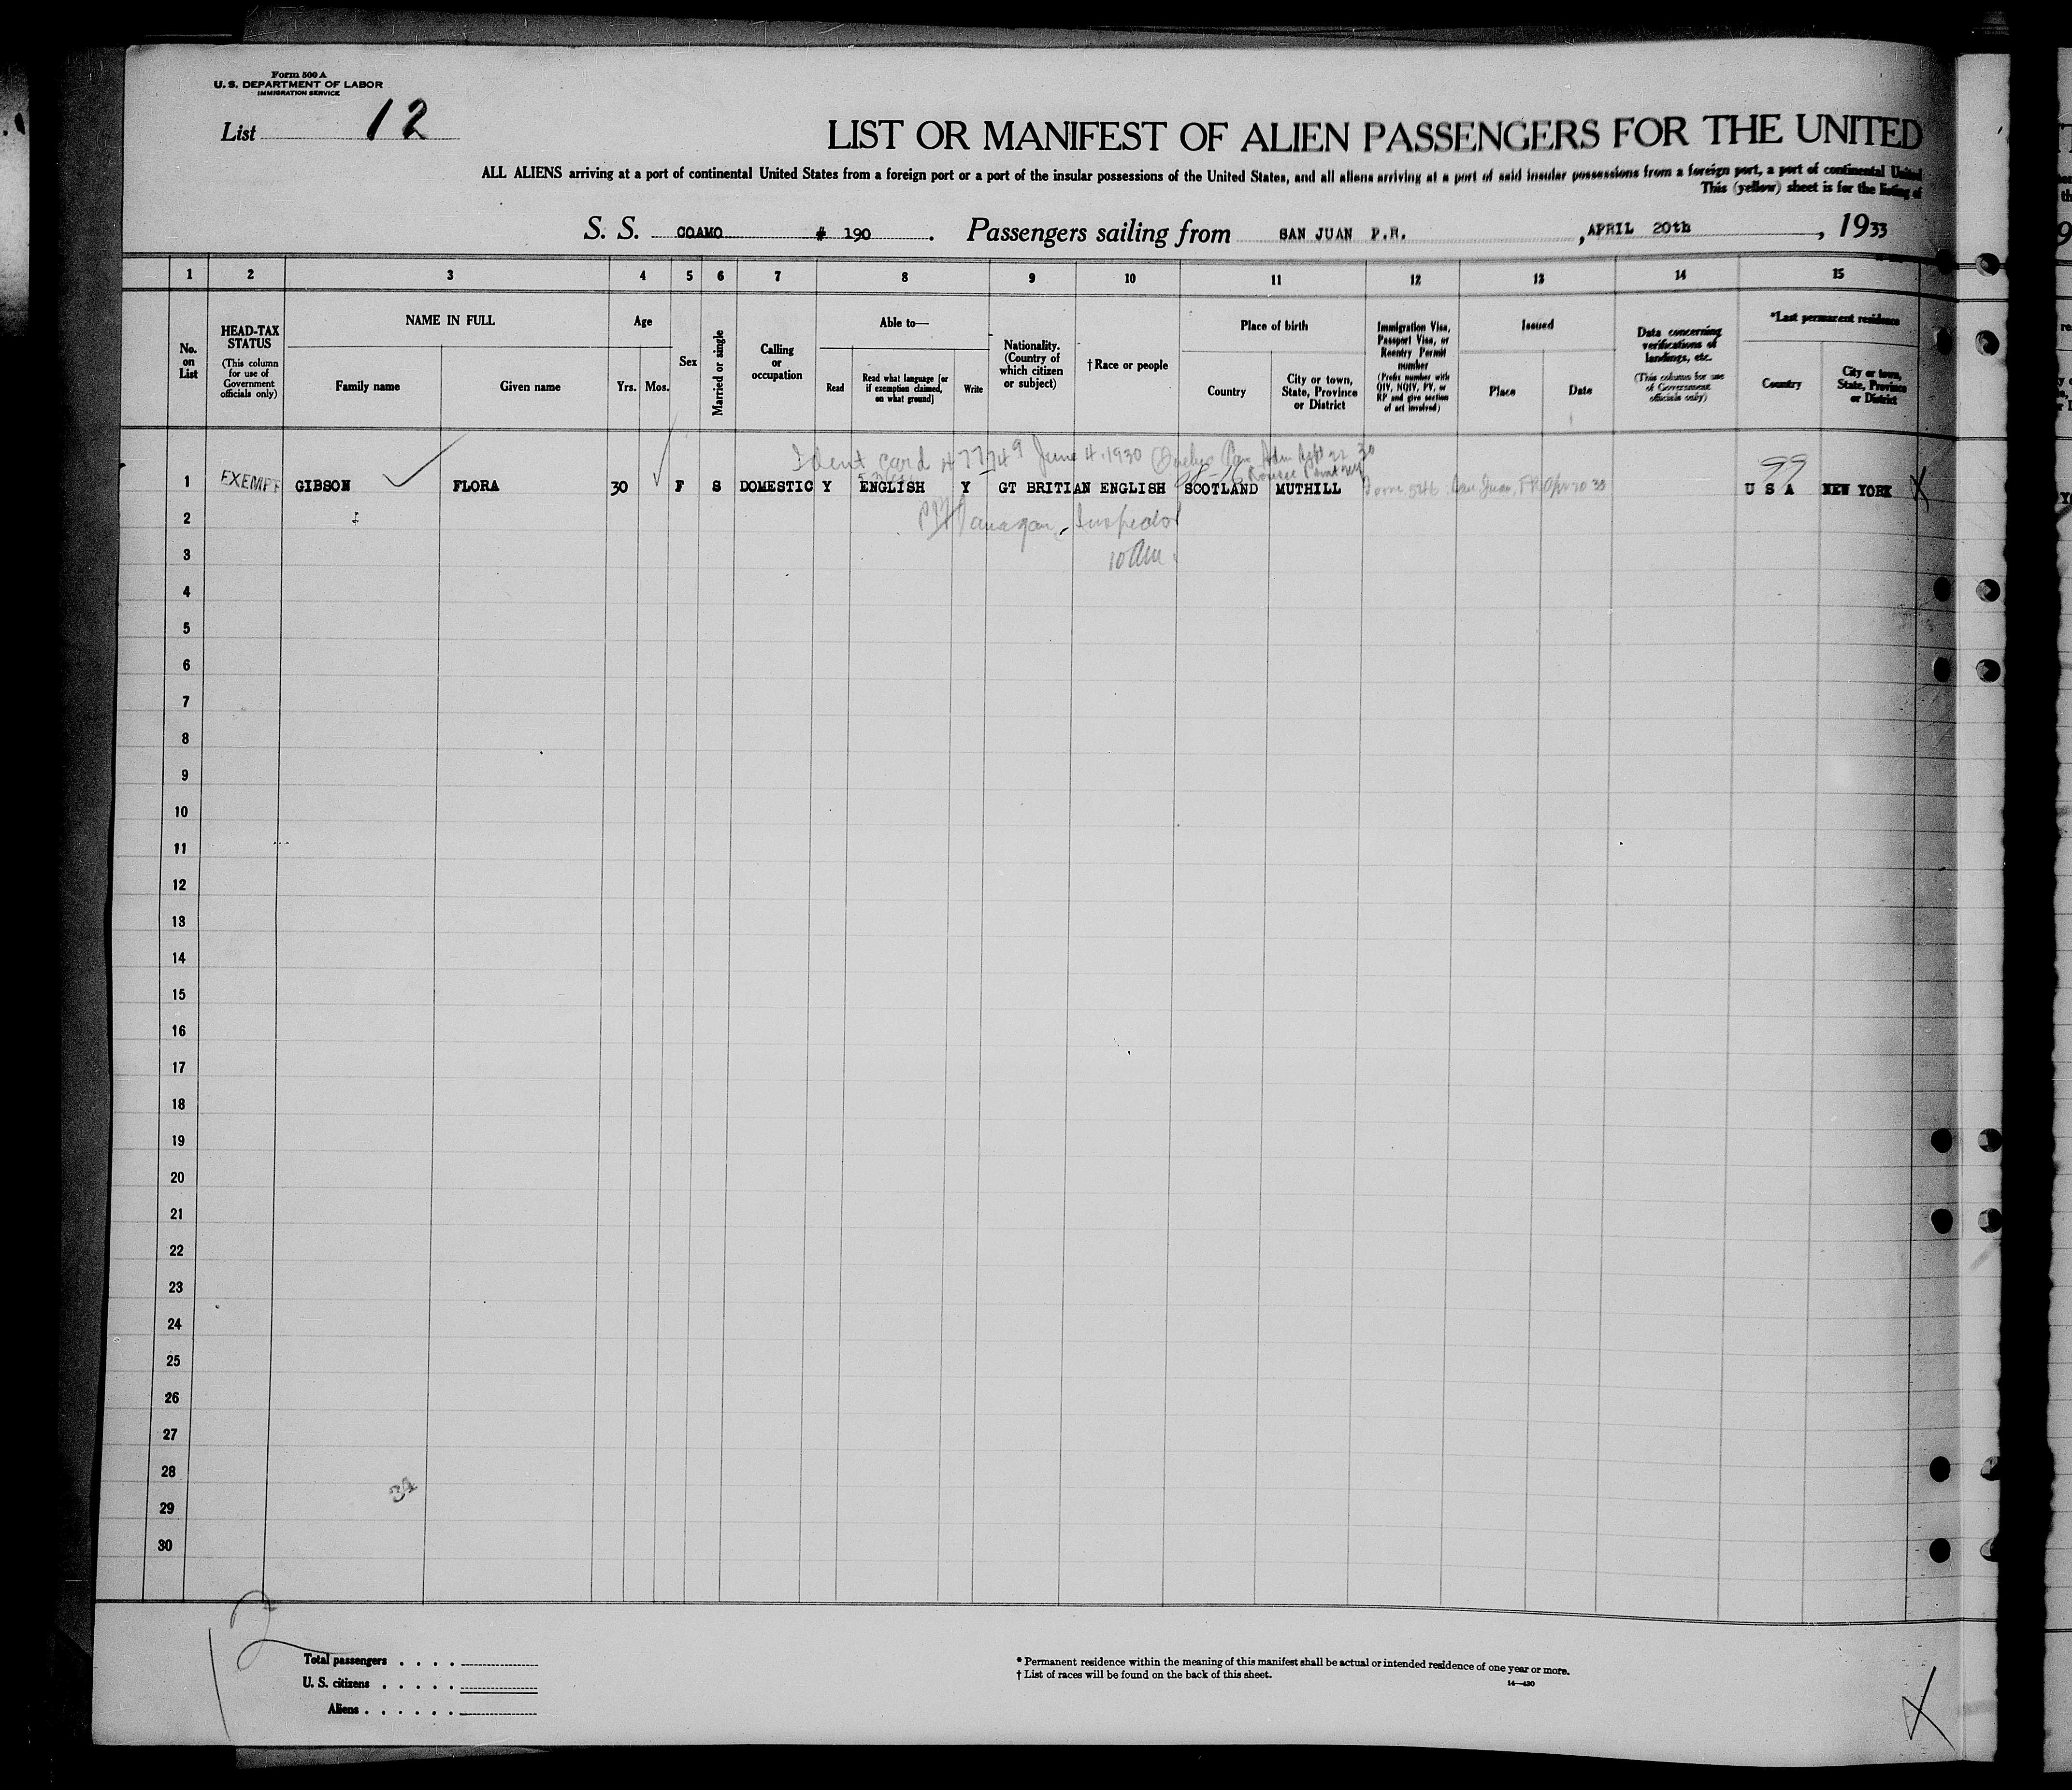 Form 500 A
U. S. DEPARTMENT OF LABOR
IMMIGRATION SERVICE
List 12
LIST OR MANIFEST OF ALIEN PASSENGERS FOR THE UNITED
ALL ALIENS arriving at a port of continental United States from a foreign port or a port of the insular possessions of the United States, and all aliens arriving at a port of said insular possessions from a foreign port, a port of continental United
This (yellow) sheet is for the listing of
S. S. COAMO # 190 . Passengers sailing from SAN JUAN P.R. , APRIL 20th , 1933
1 2 3 4 5 6 7 8 9 10 11 12 13 14 15
No. on List
HEAD-TAX STATUS
(This column for use of Government officials only)
NAME IN FULL
Family name
Given name
Age
Yrs.
Mos.
Sex
Married or single
Calling or occupation
Able to—
Read
Read what language [or if exemption claimed, on what ground]
Write
Nationality. (Country of which citizen or subject)
† Race or people
Place of birth
Country
City or town, State, Province or District
Immigration Visa, Passport Visa, or Reentry Permit number
(Prefix number with QIV, NQIV, PV, or RP and give section of act involved)
Issued
Place
Date
Data concerning verifications of landings, etc.
(This column for use of Government officials only)
*Last permanent residence
Country
City or town, State, Province or District
Ident card 477749 June 4, 1930 Quebec
99
1 EXEMPT GIBSON FLORA 30 F S DOMESTIC Y ENGLISH Y GT BRITIAN ENGLISH SCOTLAND MUTHILL San Juan, P.R. U S A NEW YORK X
2 Inspector
3 10 am
4
5
6
7
8
9
10
11
12
13
14
15
16
17
18
19
20
21
22
23
24
25
26
27
28
29
30
12
Total passengers . . . .
U. S. citizens . . . . .
Aliens . . . . . .
* Permanent residence within the meaning of this manifest shall be actual or intended residence of one year or more.
† List of races will be found on the back of this sheet.
14—430
X